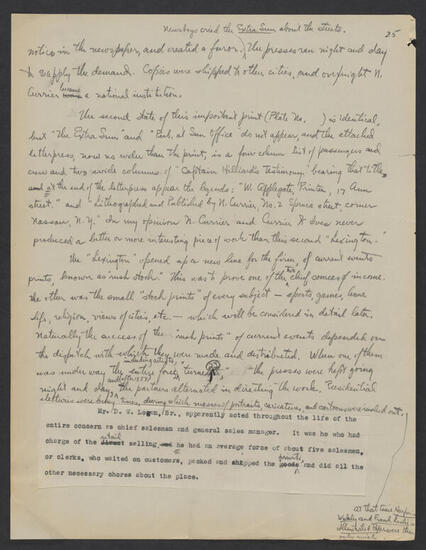 Newsboys cried the Extra Sun about the streets.
25
notice in the newspaper, and created a furor. The presses ran night and day
to supply the demand. Copies were shipped to other cities, and overnight N.
Currier became a national institution.
The second state of this important print (Plate No. ) is identical,
but "The Extra Sun" and "Pub. at Sun Office" do not appear, and the attached
letterpress, now no wider than the print, is a four column list of passengers and
crew and two wide columns of "Captain Hilliard's testimony" bearing that title,
and at the end of the letterpress appear the legends: "W. Applegate, Printer, 17 Ann
street." and "Lithographed and Published by N. Currier, No. 2 Spruce street corner
Nassau, N.Y." In my opinion N. Currier and Currier & Ives never
produced a better or more interesting piece of work than this second "Lexington."
The "Lexington" opened up a new line for the firm, of current events
prints, known as "rush stock." This was to prove one of the two chief sources of income.
The other was the small "stock prints" of every subject — sports, games, home
life, religion, views of cities, etc. — which will be considered in detail later.
Naturally the success of the "rush prints" of current events depended on
the dispatch with which they were made and distributed. When one of them
was under way the entire force, including artists, turned the presses were kept going
night and day, and (after 1857) the partners alternated in directing the work. Presidential
elections were busy times, during which masses of portraits, caricatures, and cartoons were rushed out.
Mr. D. W. Logan, Sr., apparently acted throughout the life of the
entire concern as chief salesman and general sales manager. It was he who had
charge of the retail selling and he had an average force of about five salesmen,
or clerks, who waited on customers, packed and shipped the prints and did all the
other necessary chores about the place.
at that time Harper's
Weekly and Frank Leslie's
Illustrated